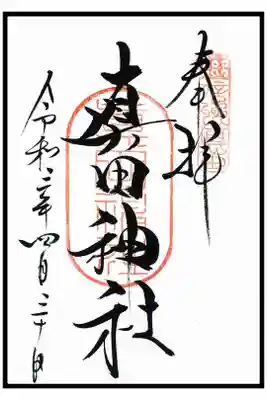 奉拝
真田神社
令和二年四月二十日